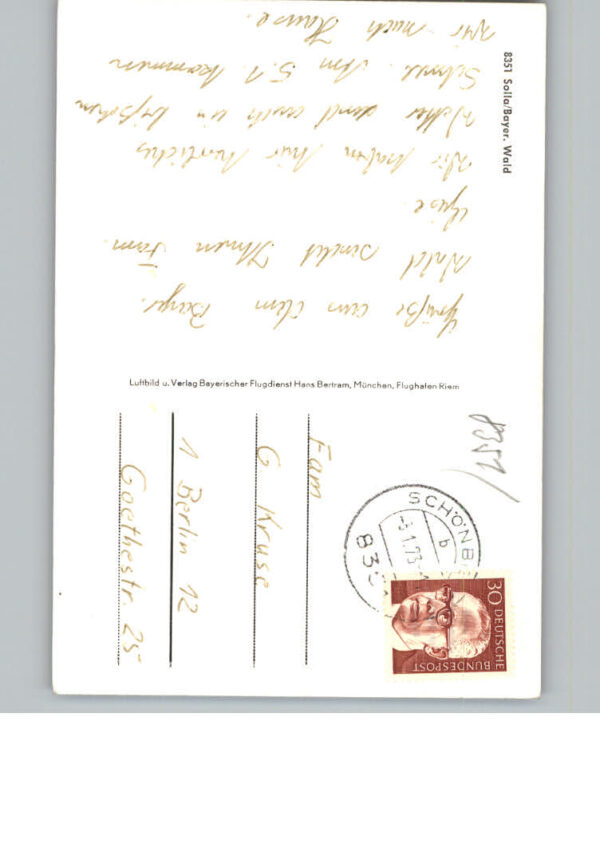 8351 Solla/Bayer. Wald
Grüße aus dem Bayr.
Wald sendet Ihnen Fam.
Wir haben hier herrliches
Wetter und auch ein bißchen
Schnee. Am 5.1. kommen
wir nach Hause.
Luftbild u. Verlag Bayerischer Flugdienst Hans Bertram, München, Flughafen Riem
8351
SCHÖNB
b
-3.1.73
835
30 DEUTSCHE
BUNDESPOST
Fam
G Kruse
1 Berlin 12
Goethestr. 25